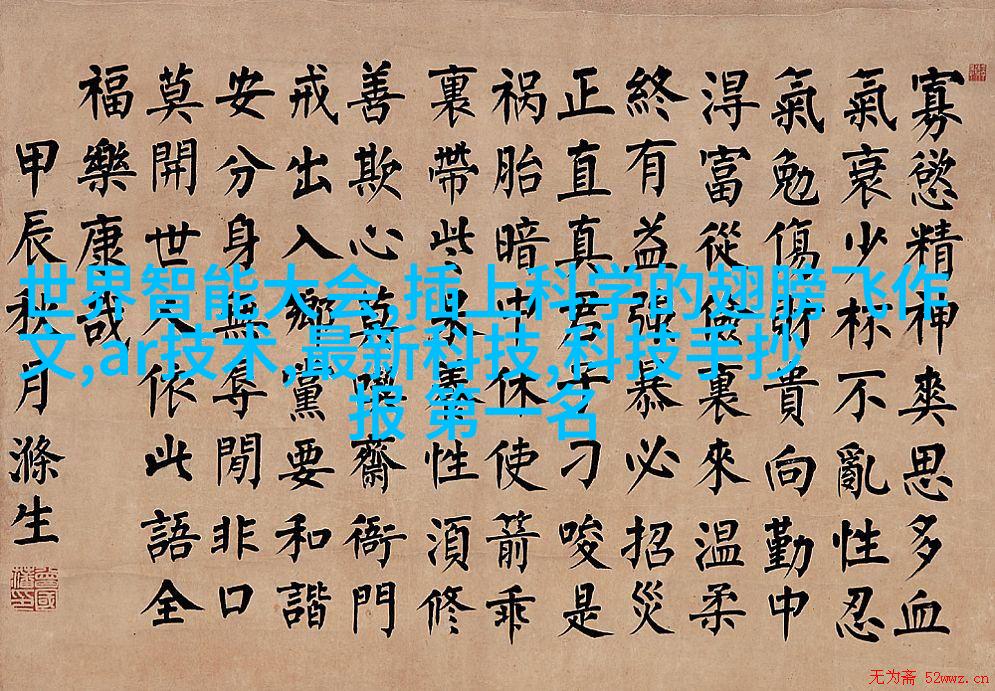 寡慾精神爽思多血
氣衰少杯不亂性忍
氣勉傷財貴向勤中
淂富從儉裏來温柔
終有益强暴必招災
正直真君子刁唆是
祸胎暗中休使箭乖
裏帶些呆養性湏修
善欺心莫喫齋衙門
戒出入鄉黨要和諧
安分身無辱閒非口
莫開世人依此語全
福樂康哉
甲辰秋月滌生
世界智能大会,插上科学的翅膀飞作
文,ar技术,最新科技,科技手抄
报 第一名
无为斋 52wwz.cn